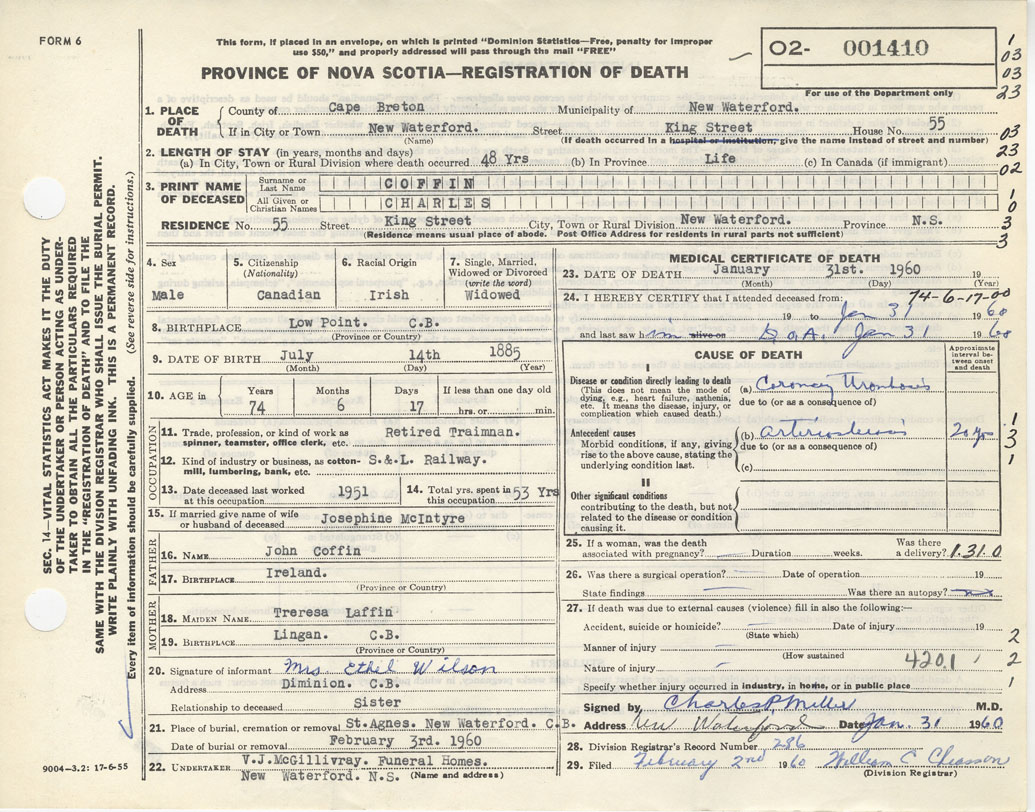 FORM 6
This form, if placed in an envelope, on which is printed "Dominion Statistics—Free, penalty for improper
use $50," and properly addressed will pass through the mail "FREE"
PROVINCE OF NOVA SCOTIA—REGISTRATION OF DEATH
O2- 001410
For use of the Department only
1
03
03
23
03
23
02
1
0
3
3
SEC. 14—VITAL STATISTICS ACT MAKES IT THE DUTY
OF THE UNDERTAKER OR PERSON ACTING AS UNDER-
TAKER TO OBTAIN ALL THE PARTICULARS REQUIRED
IN THE "REGISTRATION OF DEATH" AND TO FILE THE
SAME WITH THE DIVISION REGISTRAR WHO SHALL ISSUE THE BURIAL PERMIT.
WRITE PLAINLY WITH UNFADING INK. THIS IS A PERMANENT RECORD.
Every item of information should be carefully supplied. (See reverse side for instructions.)
1. PLACE OF DEATH
County of Cape Breton Municipality of New Waterford.
If in City or Town New Waterford. Street King Street House No. 55
(Name) (If death occurred in a hospital or institution, give the name instead of street and number)
2. LENGTH OF STAY (in years, months and days)
(a) In City, Town or Rural Division where death occurred 48 Yrs (b) In Province Life (c) In Canada (if immigrant)
3. PRINT NAME OF DECEASED
Surname or Last Name COFFIN
All Given or Christian Names CHARLES
RESIDENCE No. 55 Street King Street City, Town or Rural Division New Waterford. Province N.S.
(Residence means usual place of abode. Post Office Address for residents in rural parts not sufficient)
4. Sex
Male
5. Citizenship
(Nationality)
Canadian
6. Racial Origin
Irish
7. Single, Married,
Widowed or Divorced
(write the word)
Widowed
8. BIRTHPLACE Low Point. C.B.
(Province or Country)
9. DATE OF BIRTH July 14th 1885
(Month) (Day) (Year)
10. AGE in
Years 74
Months 6
Days 17
If less than one day old
hrs. or min.
OCCUPATION
11. Trade, profession, or kind of work as
spinner, teamster, office clerk, etc. Retired Traimnan.
12. Kind of industry or business, as cotton-
mill, lumbering, bank, etc. S.&.L. Railway.
13. Date deceased last worked
at this occupation 1951
14. Total yrs. spent in
this occupation 53 Yrs
15. If married give name of wife
or husband of deceased Josephine McIntyre
FATHER
16. NAME John Coffin
17. BIRTHPLACE Ireland.
(Province or Country)
MOTHER
18. MAIDEN NAME Treresa Laffin
19. BIRTHPLACE Lingan. C.B.
(Province or Country)
20. Signature of informant Mrs Ethel Wilson
Address Diminion. C.B.
Relationship to deceased Sister
21. Place of burial, cremation or removal St.Agnes. New Waterford. C.B.
Date of burial or removal February 3rd. 1960
22. UNDERTAKER V.J.McGillivray. Funeral Homes.
New Waterford. N.S. (Name and address)
9004—3.2: 17-6-55
MEDICAL CERTIFICATE OF DEATH
23. DATE OF DEATH January 31st. 1960 19
(Month) (Day) (Year)
74-6-17-00
24. I HEREBY CERTIFY that I attended deceased from:
19 to Jan 31 1960
and last saw him alive on D.O.A. Jan 31 1960
CAUSE OF DEATH
Approximate
interval be-
tween onset
and death
I
Disease or condition directly leading to death
(This does not mean the mode of
dying, e.g., heart failure, asthenia,
etc. It means the disease, injury, or
complication which caused death.)
(a) Coronary Thrombosis
due to (or as a consequence of)
Antecedent causes
Morbid conditions, if any, giving
rise to the above cause, stating the
underlying condition last.
(b) Arteriosclerosis 20 yrs
due to (or as a consequence of)
(c)
II
Other significant conditions
contributing to the death, but not
related to the disease or condition
causing it.
1
3
1
25. If a woman, was the death
associated with pregnancy? Duration weeks. Was there
a delivery? 1.31.0
26. Was there a surgical operation? Date of operation 19
State findings Was there an autopsy?
27. If death was due to external causes (violence) fill in also the following:—
Accident, suicide or homicide? Date of injury 19
(State which)
Manner of injury
(How sustained)
Nature of injury
4201
2
2
1
Specify whether injury occurred in industry, in home, or in public place
Signed by Charles P. Miller M.D.
Address New Waterford Date Jan. 31 1960
28. Division Registrar's Record Number 286
29. Filed February 2nd 1960 William C Chiasson
(Division Registrar)